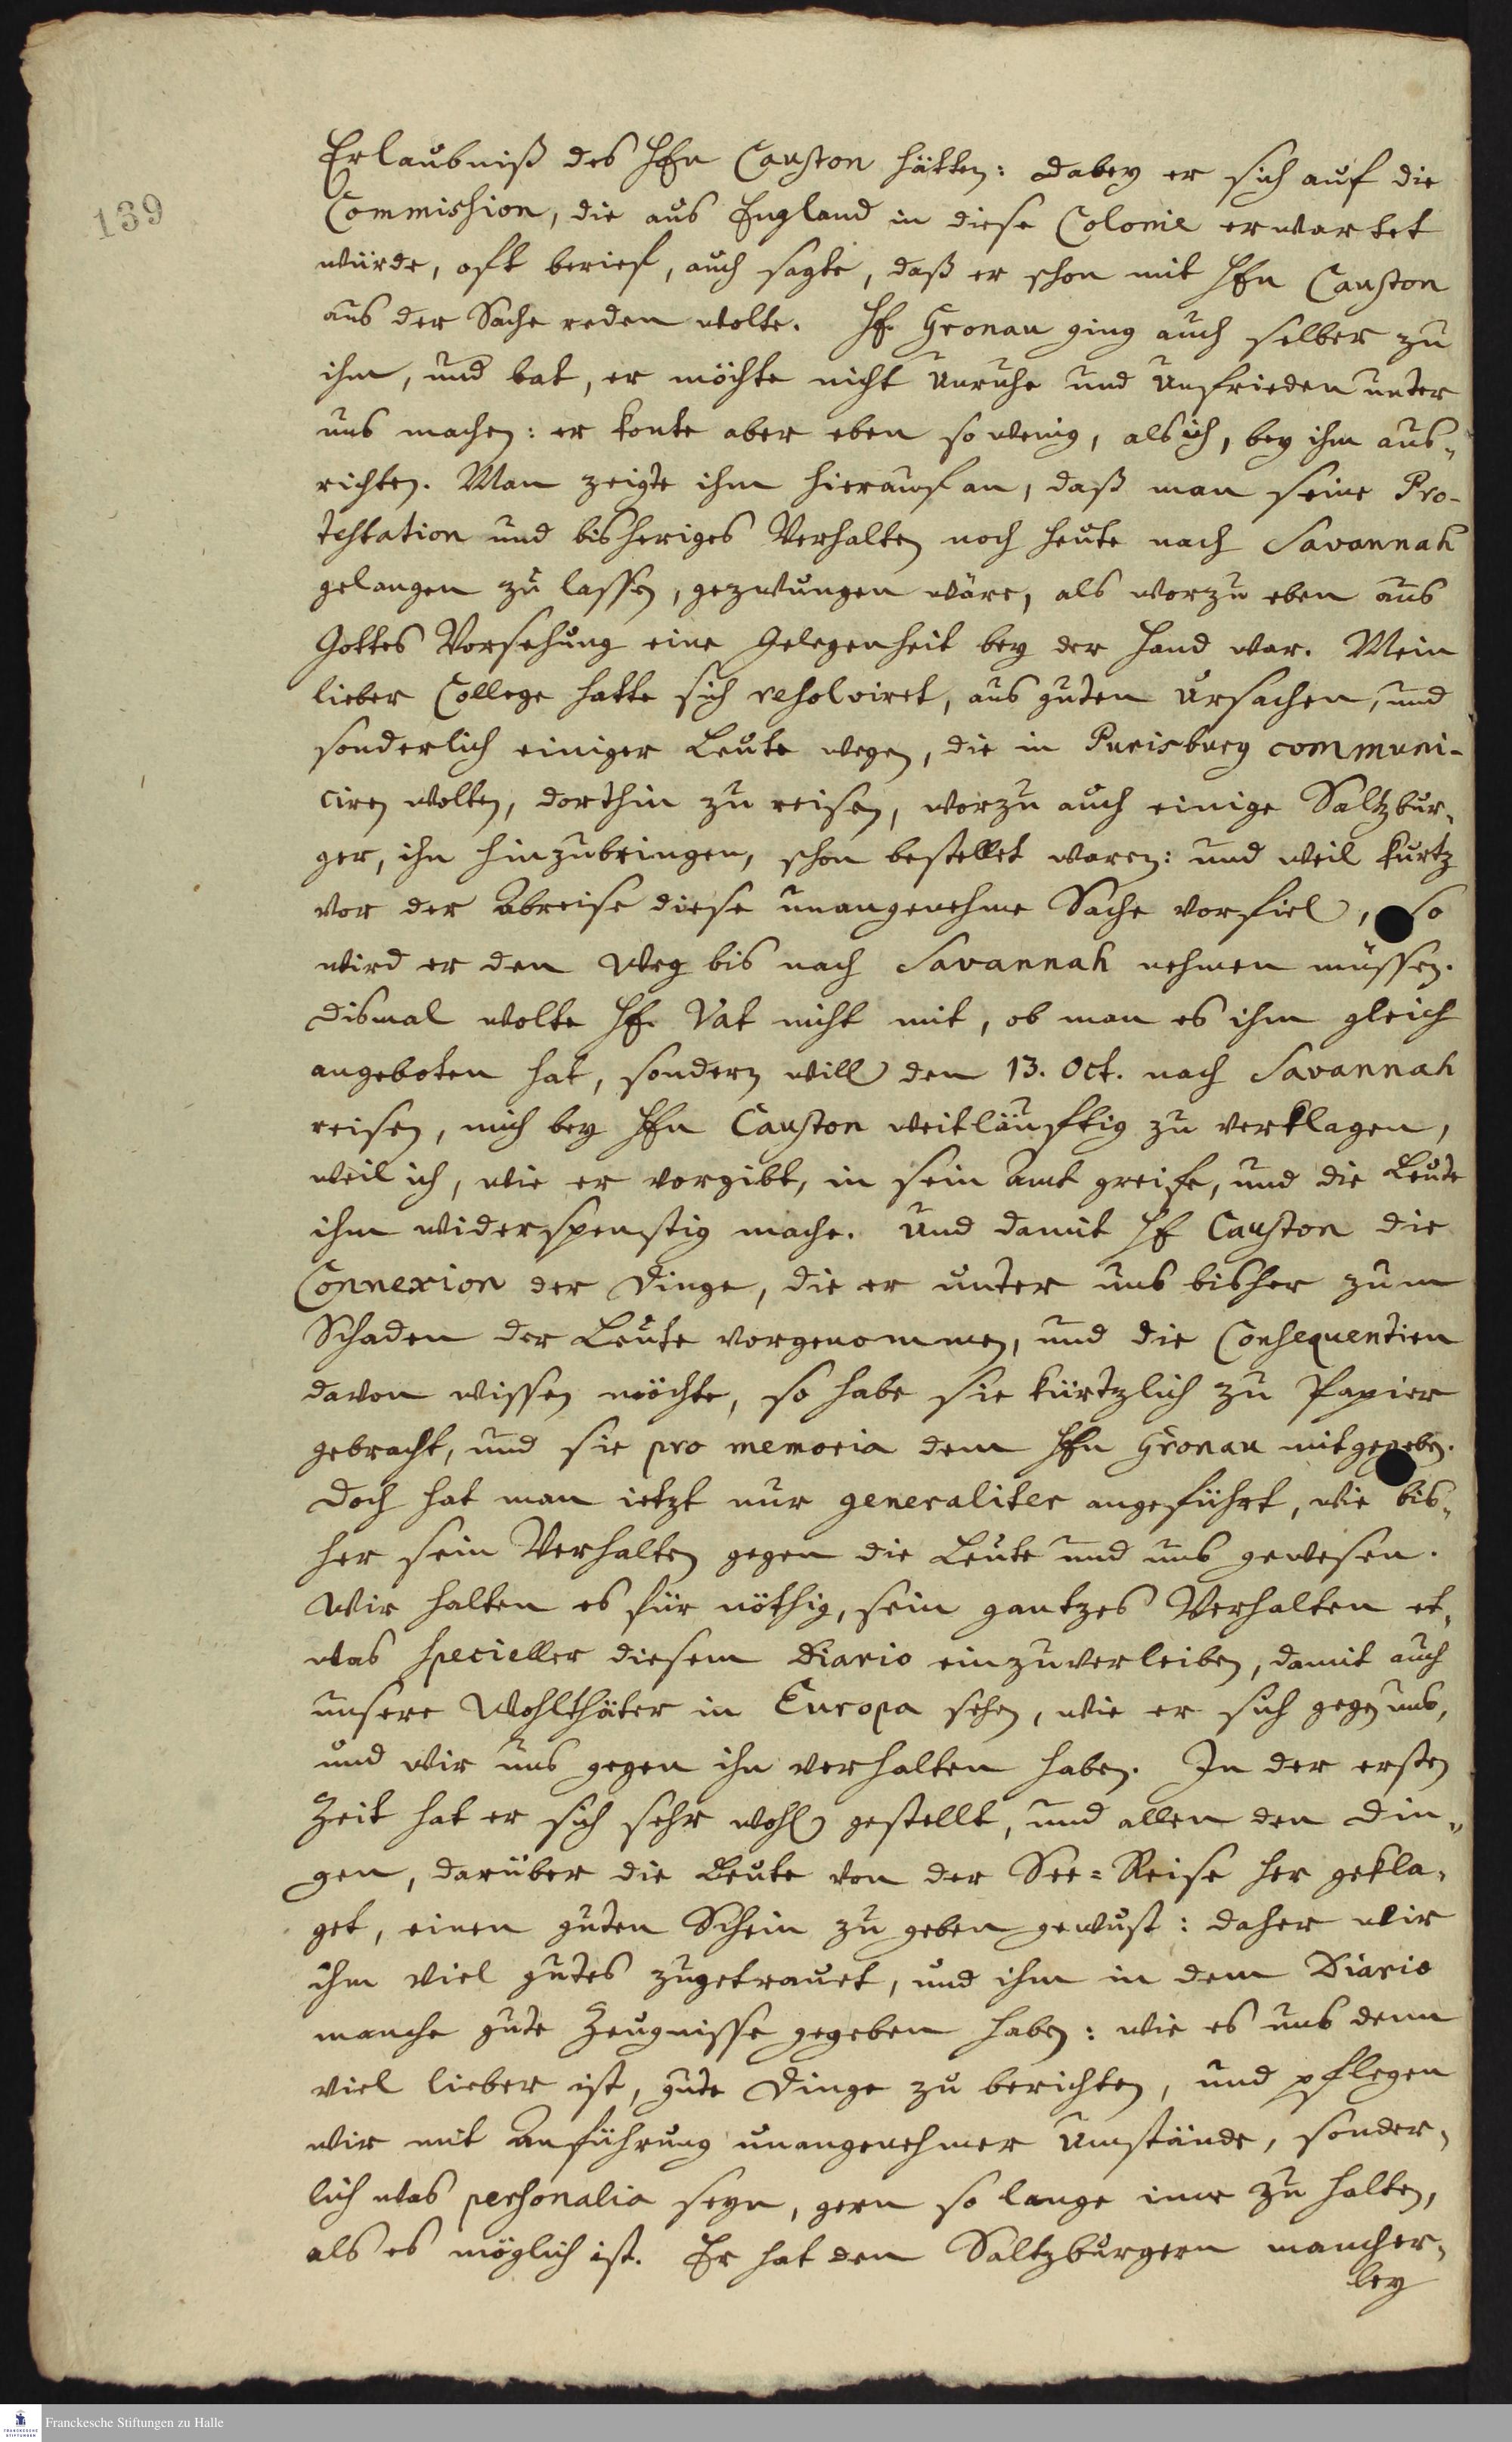 139
Erlaubniß des Hn Causton hätten: dabey er sich auf die
Commission, die aus England in diese Colonie erwartet
würde, oft berief, auch sagte, daß er schon mit Hn Causton
aus der Sache reden wolte. H. Gronau ging auch selber zu
ihm, und bat, er möchte nicht Unruhe und Unfrieden unter
uns machen: er konte aber eben so wenig, als ich, bey ihm aus„
richten. Man zeigte ihm hierauf an, daß man seine Pro-
testation und bisheriges Verhalten noch heute nach Savannah
gelangen zu lassen, gezwungen wäre, als worzu eben aus
Gottes Vorsehung eine Gelegenheit bey der Hand war. Mein
lieber College hatte sich resolviret, aus guten Ursachen, und
sonderlich einiger Leute wegen, die in Purisburg communi-
ciren wolten, dorthin zu reisen, worzu auch einige Saltzbur„
ger, ihn hinzubringen, schon bestellet waren: und weil kurtz
vor der Abreise diese unangenehme Sache vorfiel, so
wird er den Weg bis nach Savannah nehmen müssen.
Dismal wolte H. Vat nicht mit, ob man es ihm gleich
angeboten hat, sondern will den 13. Oct. nach Savannah
reisen, mich bey Hn Causton weitläuftig zu verklagen,
weil ich, wie er vorgibt, in sein Amt greife, und die Leute
ihm widerspenstig mache. Und damit H Causton die
Connexion der Dinge, die er unter uns bisher zum
Schaden der Leute vorgenommen, und die Consequentien
davon wissen möchte, so habe sie kürtzlich zu Papier
gebracht, und sie pro memoria dem Hn Gronau mitgegeben.
Doch hat man ietzt nur generaliter angeführt, wie bis„
her sein Verhalten gegen die Leute und uns gewesen.
Wir halten es für nöthig, sein gantzes Verhalten et„
was specieller diesem Diario einzuverleiben, damit auch
unsere Wohlthäter in Europa sehen, wie er sich gegen uns,
und wir uns gegen ihn verhalten haben. In der ersten
Zeit hat er sich sehr wohl gestellt, und allen den Din„
gen, darüber die Leute von der See-Reise her gekla„
get, einen guten Schein zu geben gewust: daher wir
ihm viel gutes zugetrauet, und ihm in dem Diario
manche gute Zeugnisse gegeben haben: wie es uns denn
viel lieber ist, gute Dinge zu berichten, und pflegen
wir mit Anführung unangenehmer Umstände, sonder„
lich was personalia seyn, gern so lange inne zu halten,
als es möglich ist. Er hat den Saltzburgern mancher„
ley
Franckesche Stiftungen zu Halle